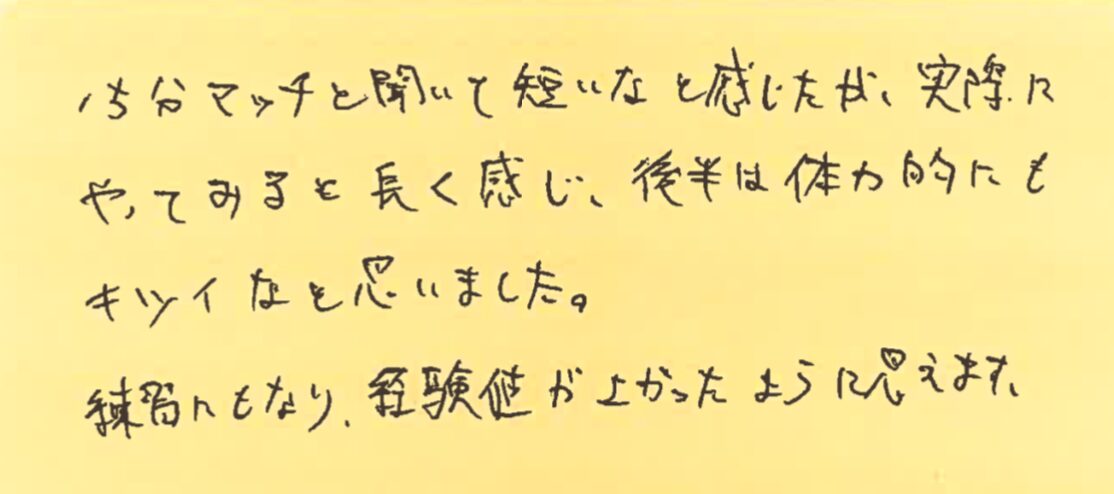 15分マッチと聞いて短いなと感じたが、実際に
やってみると長く感じ、後半は体力的にも
キツイなと思いました。
練習にもなり、経験値が上がったように思えます。